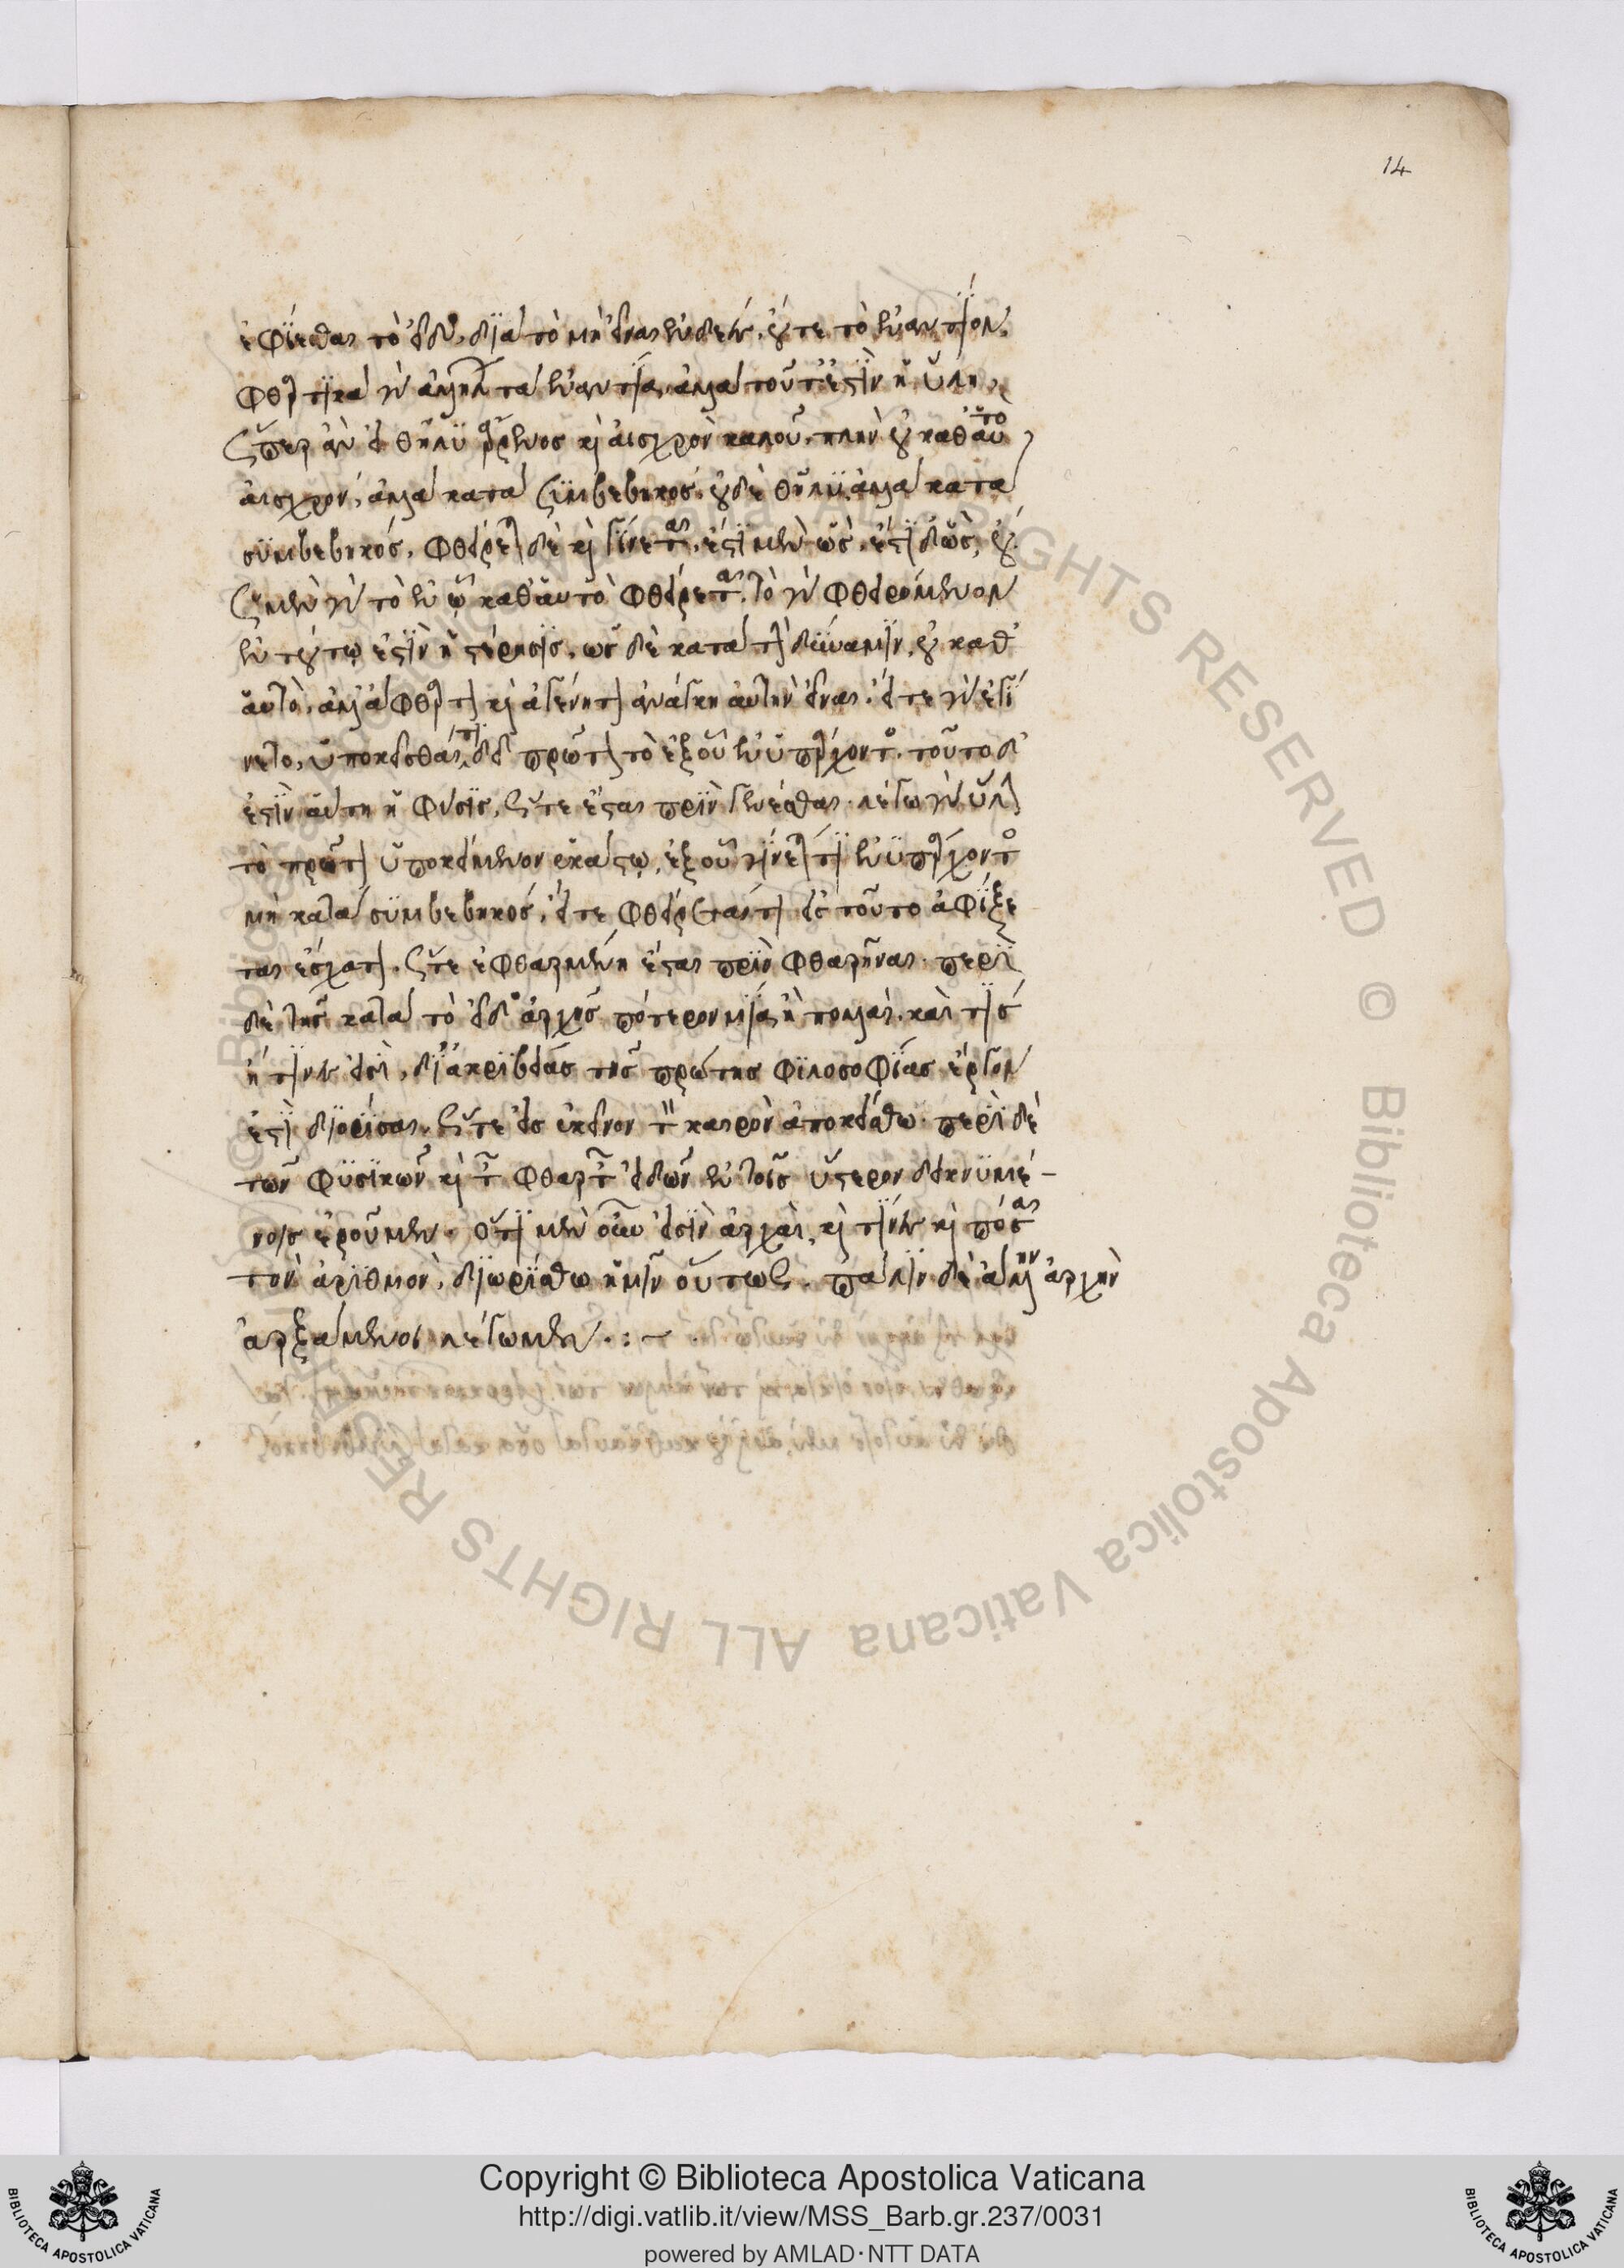 14
ἐφίεσθαι τὸ εἶδος, διὰ τὸ μὴ εἶναι ἐνδεές. οὔτε τὸ ἐναντίον.
φθαρτικὰ γὰρ ἀλλήλων τὰ ἐναντία. ἀλλὰ τοῦτ' ἐστὶν ἡ ὕλη,
ὥσπερ ἂν εἰ θῆλυ ἄρρενος καὶ αἰσχρὸν καλοῦ. πλὴν οὐ καθ' αὑτὸ
αἰσχρόν, ἀλλὰ κατὰ συμβεβηκός. οὐδὲ θῆλυ, ἀλλὰ κατὰ
συμβεβηκός. φθείρεται δὲ καὶ γίνεται, ἔστι μὲν ὡς, ἔστι δ' ὡς οὔ.
ὡς μὲν γὰρ τὸ ἐν ᾧ καθ' αὑτὸ φθείρεται. τὸ γὰρ φθειρόμενον
ἐν τούτῳ ἐστὶν ἡ στέρησις. ὡς δὲ κατὰ τὴν δύναμιν, οὐ καθ'
αὑτὸ, ἀλλ' ἄφθαρτον καὶ ἀγένητον ἀνάγκη αὐτὴν εἶναι. εἴτε γὰρ ἐγί
νετο, ὑποκεῖσθαί τι δεῖ πρῶτον τὸ ἐξ οὗ ἐνυπάρχοντος. τοῦτο δ'
ἐστὶν αὐτὴ ἡ φύσις, ὥστε ἔσται πρὶν γενέσθαι. λέγω γὰρ ὕλην
τὸ πρῶτον ὑποκείμενον ἑκάστῳ, ἐξ οὗ γίνεταί τι ἐνυπάρχοντος
μὴ κατὰ συμβεβηκός. εἴτε φθείρεται, εἰς τοῦτο ἀφίξε
ται ἔσχατον. ὥστε ἐφθαρμένη ἔσται πρὶν φθαρῆναι. περὶ
δὲ τῆς κατὰ τὸ εἶδος ἀρχῆς πότερον μία ἢ πολλαὶ. καὶ τίς
ἢ τίνες εἰσὶ, δι' ἀκριβείας τῆς πρώτης φιλοσοφίας ἔργον
ἐστὶ διορίσαι. ὥστε εἰς ἐκεῖνον τὸν καιρὸν ἀποκείσθω. περὶ δὲ
τῶν φυσικῶν καὶ τῶν φθαρτῶν εἰδῶν ἐν τοῖς ὕστερον δεικνυμέ-
νοις ἐροῦμεν. ὅτι μὲν οὖν εἰσὶν ἀρχαὶ, καὶ τίνες καὶ πόσαι
τὸν ἀριθμὸν, διωρίσθω ἡμῖν οὕτως. πάλιν δὲ ἄλλην ἀρχὴν
ἀρξάμενοι λέγωμεν .:~
Copyright © Biblioteca Apostolica Vaticana
http://digi.vatlib.it/view/MSS_Barb.gr.237/0031
powered by AMLAD·NTT DATA